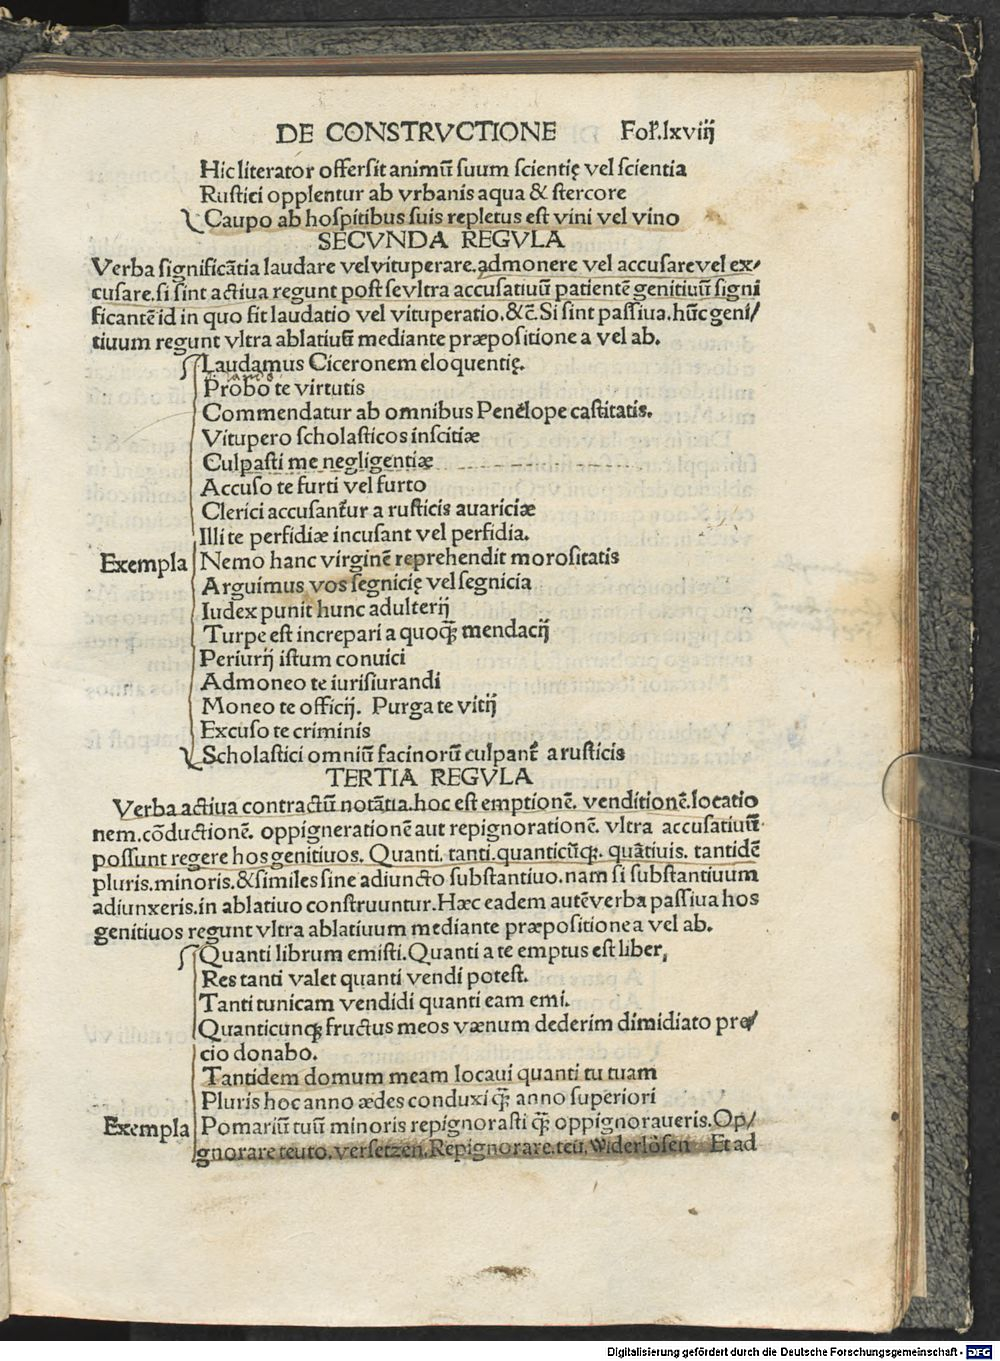 DE CONSTRVCTIONE Fol.lxviij
Hic literator offersit animū suum scientię vel scientia
Rustici opplentur ab vrbanis aqua & stercore
Caupo ab hospitibus suis repletus est vini vel vino
SECVNDA REGVLA
Verba significātia laudare vel vituperare.admonere vel accusare vel ex/
cusare.si sint actiua regunt post se vltra accusatiuū patientē genitiuū signi
ficantē id in quo fit laudatio vel vituperatio.&c̄.Si sint passiua.hūc geni/
tiuum regunt vltra ablatiuū mediante præpositione a vel ab.
Laudamus Ciceronem eloquentię.
Probo te virtutis
Commendatur ab omnibus Penelope castitatis.
Vitupero scholasticos inscitiæ
Culpasti me negligentiæ
Accuso te furti vel furto
Clerici accusant᷑ur a rusticis auariciæ
Illi te perfidiæ incusant vel perfidia.
Exempla Nemo hanc virginē reprehendit morositatis
Arguimus vos segnicię vel segnicia
Iudex punit hunc adulterij
Turpe est increpari a quoqꝫ mendacij
Periurij istum conuici
Admoneo te iurisiurandi
Moneo te officij. Purga te vitij
Excuso te criminis
Scholastici omniū facinorū culpant᷑ a rusticis
TERTIA REGVLA
Verba actiua contractū notātia.hoc est emptionē. venditionē.locatio
nem.cōductionē. oppignerationē aut repignorationē. vltra accusatiuū
possunt regere hos genitiuos. Quanti. tanti.quanticūqꝫ. quātiuis. tantidē
pluris.minoris.& similes sine adiuncto substantiuo.nam si substantiuum
adiunxeris.in ablatiuo construuntur.Hæc eadem autē verba passiua hos
genitiuos regunt vltra ablatiuum mediante præpositione a vel ab.
Quanti librum emisti.Quanti a te emptus est liber,
Res tanti valet quanti vendi potest.
Tanti tunicam vendidi quanti eam emi.
Quanticunqꝫ fructus meos vænum dederim dimidiato pre/
cio donabo.
Tantidem domum meam locaui quanti tu tuam
Pluris hoc anno ædes conduxi q̄ꝫ anno superiori
Exempla Pomariū tuū minoris repignorasti q̄ꝫ oppignoraueris.Op/
gnorare teuto.versetzen.Repignorare.teu.Widerlösen Et ad
Digitalisierung gefördert durch die Deutsche Forschungsgemeinschaft - DFG